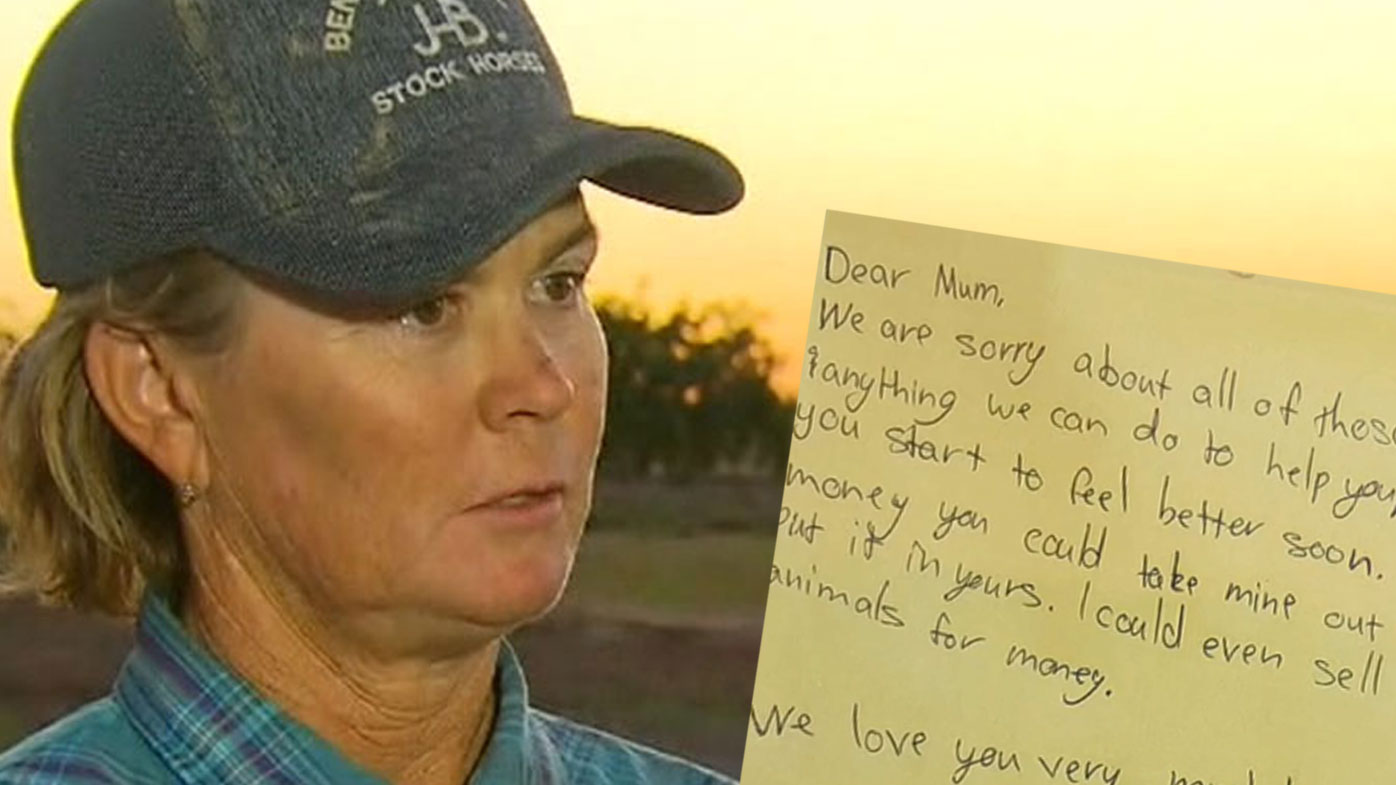 BEN
JHB.
STOCK HORSES
Dear Mum,
We are sorry about all of these
& anything we can do to help you,
you start to feel better soon.
money you could take mine out
put it in yours. I could even sell
animals for money.
We love you very